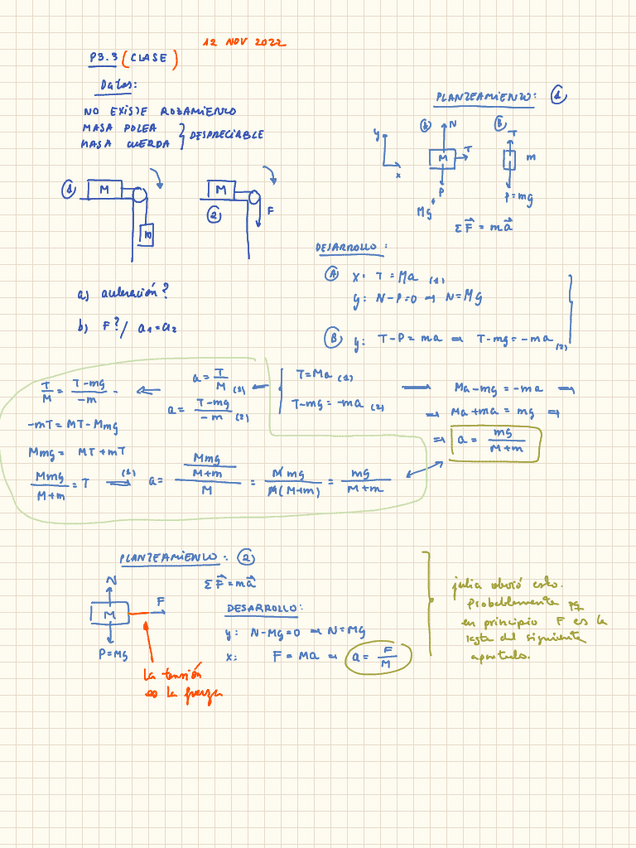 12 NOV 2022
P3.3 (CLASE)
Datos:
NO EXISTE ROZAMIENTO
MASA POLEA
MASA CUERDA } DESPRECIABLE
① M m
② M F
a) aceleración?
b) F?/ a₁=a₂
PLANTEAMIENTO: ①
y x
Ⓐ N M T P Mg
Ⓑ T m P=mg
ΣF⃗ = ma⃗
DESARROLLO:
Ⓐ x: T = Ma (1)
y: N-P=0 → N=Mg
Ⓑ y: T-P=ma → T-mg=-ma (2)
T/M = (T-mg)/-m ← a = T/M (1) ← { T=Ma (1) → Ma-mg=-ma ⇒
a = (T-mg)/-m (2) T-mg=-ma (2) ⇒ Ma+ma=mg ⇒
-mT = MT-Mmg
⇒ a = mg/(M+m)
Mmg = MT+mT
Mmg/(M+m) = T ⇒ (1) a = (Mmg/(M+m))/M = Mmg/(M(M+m)) = mg/(M+m)
PLANTEAMIENTO: ②
ΣF⃗=ma⃗
N M F P=Mg
DESARROLLO:
y: N-Mg=0 → N=Mg
x: F=Ma → a = F/M
La tensión
es la fuerza
julia obvió esto.
Probablemente pq
en principio F es la
del siguiente
apartado.